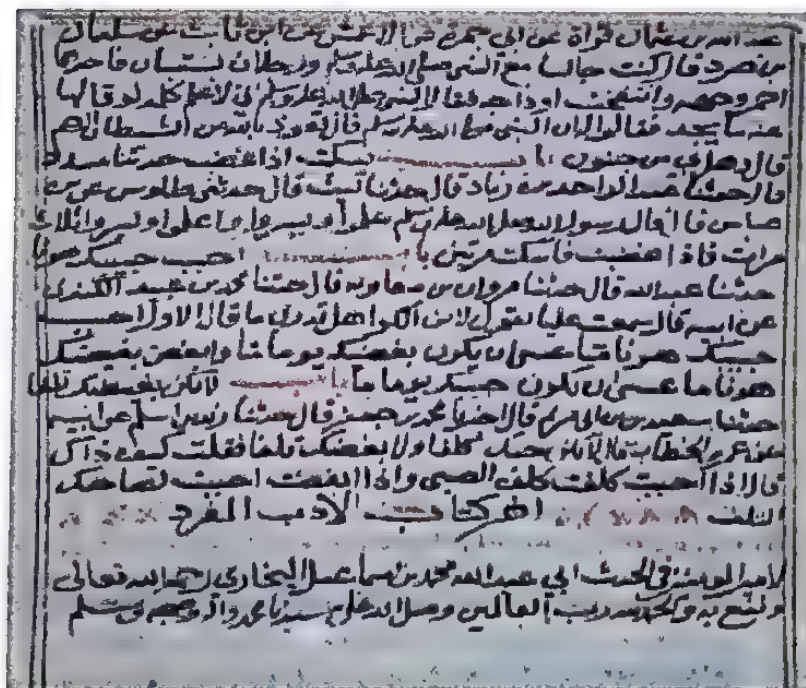 عبد الله بن عثمان قراءة عن أبي حمزة عن الأعمش عن ابن ثابت عن سليمان
بن صرد قال كنت جالسا مع النبي صلى الله عليه وسلم ورجلان يستبان فأحدهما
احمر وجهه وانتفخت اوداجه فقال النبي صلى الله عليه وسلم اني لاعلم كلمة لو قالها
عنه ما يجد فقالوا له ان النبي صلى الله عليه وسلم قال تعوذ بالله من الشيطان
قال وهل بي من جنون باب يسكت اذا غضب حدثنا مسدد
قال حدثنا عبد الواحد بن زياد قال حدثنا ليث قال حدثني طاوس عن بن
عباس قال قال رسول الله صلى الله عليه وسلم علموا ويسروا علموا ويسروا ثلاث
مرات فاذا غضبت فاسكت مرتين باب احبب حبيبك هونا
حدثنا عبد الله قال حدثنا مروان بن معاوية قال حدثنا محمد بن عبيد الكندي
عن ابيه قال سمعت عليا يقول لابن الكوا هل تدري ما قال الاول احبب
حبيبك هونا ما عسى ان يكون بغيضك يوما ما وابغض بغيضك
هونا ما عسى ان يكون حبيبك يوما ما باب لا يكن بغضك تلفا
حدثنا سعيد بن ابي مريم قال اخبرنا محمد بن جعفر قال حدثنا زيد بن اسلم عن ابيه
عن عمر بن الخطاب قال لا يكن حبك كلفا ولا بغضك تلفا فقلت كيف ذاك
قال اذا احببت كلفت كلف الصبي واذا ابغضت احببت لصاحبك
التلف اخر كتاب الادب المفرد
لامير المومنين في الحديث ابي عبد الله محمد بن اسماعيل البخاري رحمه الله تعالى
ونفع به والحمد لله رب العالمين وصلى الله على سيدنا محمد واله وصحبه وسلم